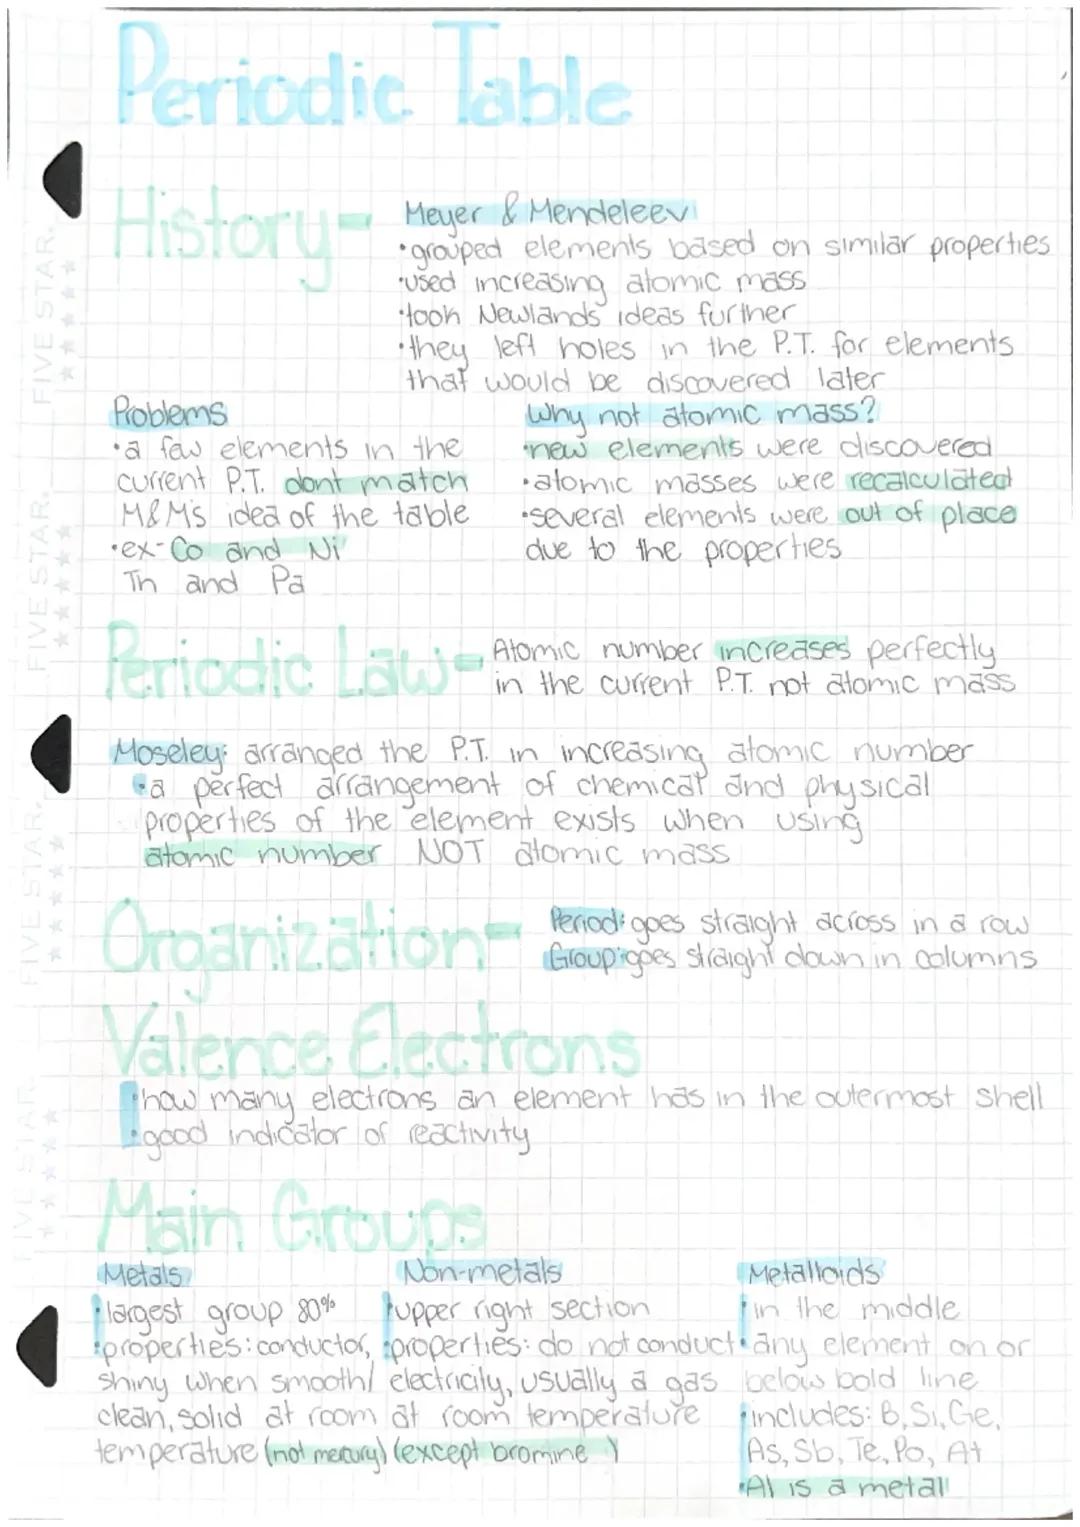 Periodic Table
History-
Meyer & Mendeleev
•grouped elements based on similar properties
•used increasing atomic mass
•took Newlands' ideas further
•they left holes in the P.T. for elements
that would be discovered later
Problems
•a few elements in the
current P.T. dont match
M&M's idea of the table
•ex- Co and Ni
Th and Pa
Why not atomic mass?
•new elements were discovered
•atomic masses were recalculated
•several elements were out of place
due to the properties
Periodic Law-
Atomic number increases perfectly
in the current P.T. not atomic mass
Moseley: arranged the P.T. in increasing atomic number
•a perfect arrangement of chemical and physical
properties of the element exists when using
atomic number NOT atomic mass
Organization-
Period: goes straight across in a row
Group: goes straight down in columns
Valence Electrons
•how many electrons an element has in the outermost shell
•good indicator of reactivity
Main Groups
Metals
•largest group 80%
•properties: conductor,
shiny when smooth/
clean, solid at room
temperature (not mercury)
Non-metals
•upper right section
•properties: do not conduct
electricity, usually a gas
at room temperature
(except bromine)
Metalloids
•in the middle
•any element on or
below bold line
•includes: B, Si, Ge,
As, Sb, Te, Po, At
•Al is a metal
FIVE STAR.
FIVE STAR.
FIVE STAR.
FIVE STAR.